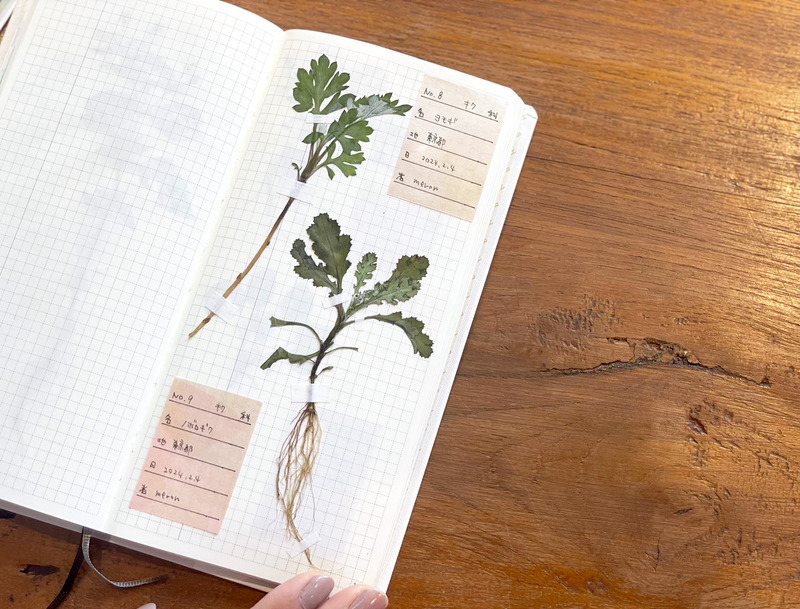 No. 8 キク 科
名 ヨモギ
地 東京都
日 2024.2.4
者 meron
No. 9 キク 科
名 ノボロギク
地 東京都
日 2024.2.4
者 meron